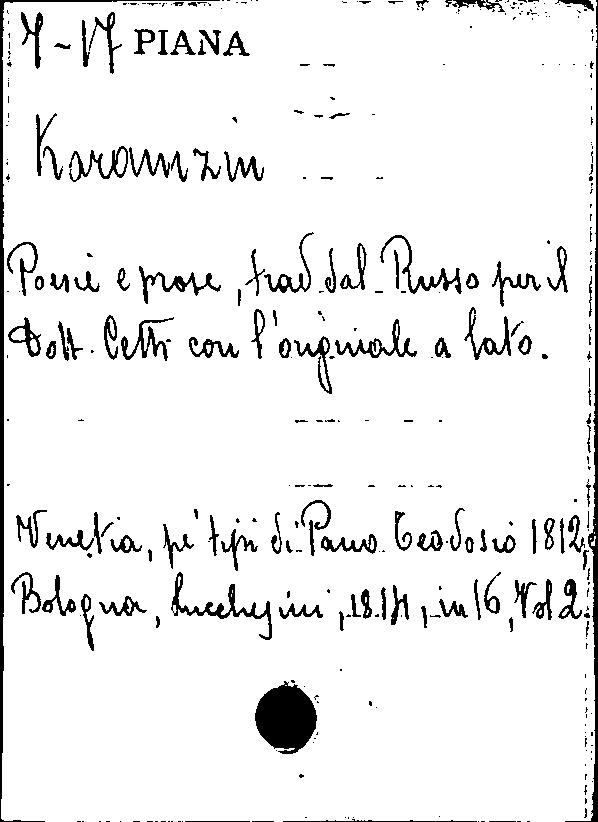 7-17 PIANA
Karamzin
Poesie e prose, trad dal Russo per il
Dott. Cetti con l'originale a lato.
Venezia, pe' tipi di Pano Teodosio 1812, e
Bologna, Lucchesini, 1814, in 16, Vol 2.